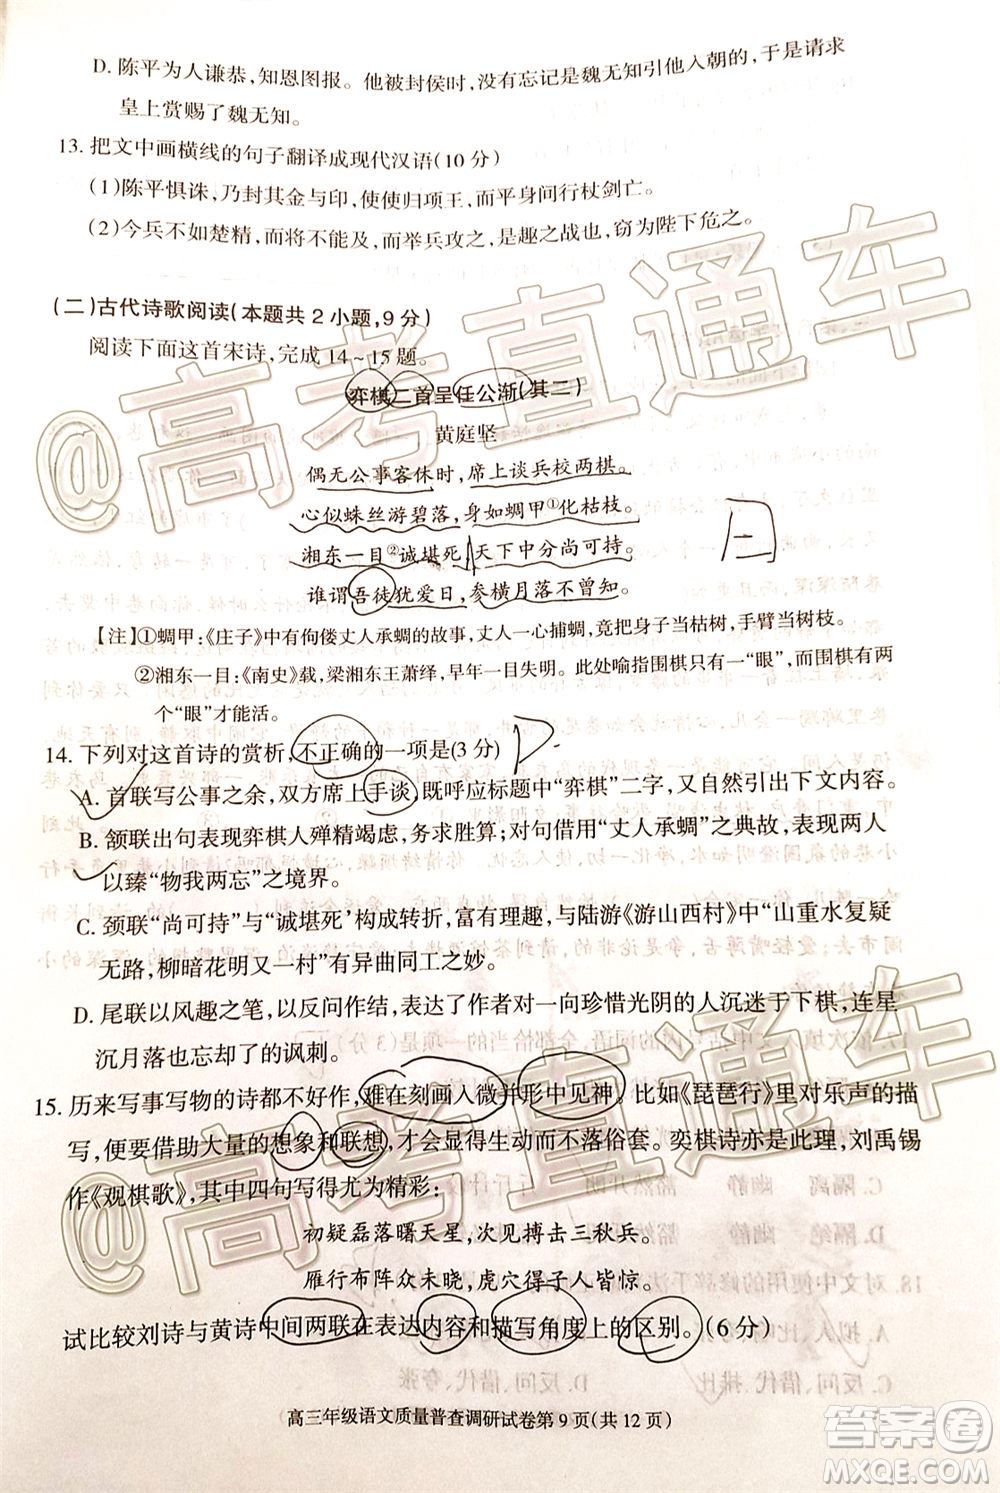 D. 陈平为人谦恭,知恩图报。他被封侯时,没有忘记是魏无知引他入朝的,于是请求
皇上赏赐了魏无知。
13. 把文中画横线的句子翻译成现代汉语(10 分)
(1)陈平惧诛,乃封其金与印,使使归项王,而平身间行杖剑亡。
(2)今兵不如楚精,而将不能及,而举兵攻之,是趣之战也,窃为陛下危之。
(二)古代诗歌阅读(本题共 2 小题,9 分)
阅读下面这首宋诗,完成 14~15 题。
弈棋二首呈任公渐(其二)
黄庭坚
偶无公事客休时,席上谈兵校两棋。
心似蛛丝游碧落,身如蜩甲①化枯枝。
湘东一目②诚堪死,天下中分尚可持。
谁谓吾徒犹爱日,参横月落不曾知。
【注】①蜩甲:《庄子》中有佝偻丈人承蜩的故事,丈人一心捕蜩,竟把身子当枯树,手臂当树枝。
②湘东一目:《南史》载,梁湘东王萧绎,早年一目失明。此处喻指围棋只有一“眼”,而围棋有两
个“眼”才能活。
14. 下列对这首诗的赏析,不正确的一项是(3 分)
A. 首联写公事之余,双方席上手谈,既呼应标题中“弈棋”二字,又自然引出下文内容。
B. 颔联出句表现弈棋人殚精竭虑,务求胜算;对句借用“丈人承蜩”之典故,表现两人
以臻“物我两忘”之境界。
C. 颈联“尚可持”与“诚堪死’构成转折,富有理趣,与陆游《游山西村》中“山重水复疑
无路,柳暗花明又一村”有异曲同工之妙。
D. 尾联以风趣之笔,以反问作结,表达了作者对一向珍惜光阴的人沉迷于下棋,连星
沉月落也忘却了的讽刺。
15. 历来写事写物的诗都不好作,难在刻画入微并形中见神。比如《琵琶行》里对乐声的描
写,便要借助大量的想象和联想,才会显得生动而不落俗套。奕棋诗亦是此理,刘禹锡
作《观棋歌》,其中四句写得尤为精彩:
初疑磊落曙天星,次见搏击三秋兵。
雁行布阵众未晓,虎穴得子人皆惊。
试比较刘诗与黄诗中间两联在表达内容和描写角度上的区别。(6 分)
高三年级语文质量普查调研试卷第 9 页(共 12 页)
@高考直通车
@高考直通车
答案圈
MXQE.COM